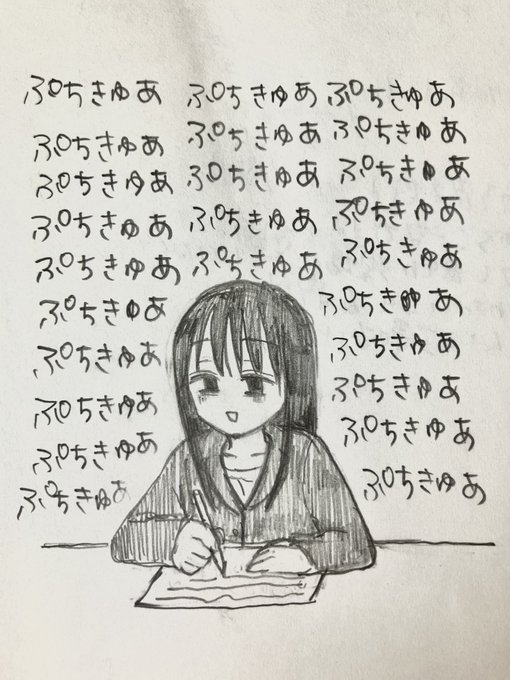 ぷちきゅあ ぷちきゅあ ぷちきゅあ
ぷちきゅあ ぷちきゅあ ぷちきゅあ
ぷちきゅあ ぷちきゅあ ぷちきゅあ
ぷちきゅあ ぷちきゅあ ぷちきゅあ
ぷちきゅあ ぷちきゅあ ぷちきゅあ
ぷちきゅあ ぷちきゅあ
ぷちきゅあ ぷちきゅあ
ぷちきゅあ ぷちきゅあ
ぷちきゅあ ぷちきゅあ
ぷちきゅあ ぷちきゅあ